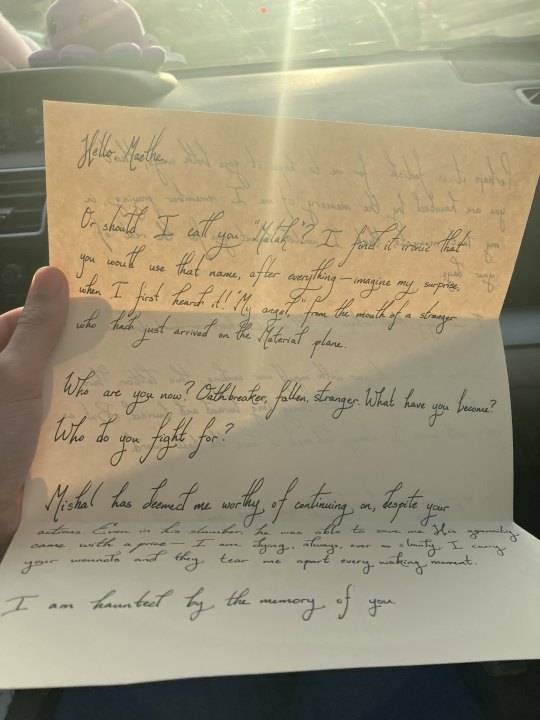 Hello, Maethe.
Or should I call you "Malah"? I find it ironic that
you would use that name, after everything—imagine my surprise,
when I first heard it! "My angel," from the mouth of a stranger
who had just arrived on the Material plane.
Who are you now? Oathbreaker, fallen, stranger. What have you become?
Who do you fight for?
Mishal has deemed me worthy of continuing on, despite your
actions. Even in his slumber, he was able to save me. His generosity
came with a price— I am dying, always, ever so slowly. I carry
your wounds and they tear me apart every waking moment.
I am haunted by the memory of you.